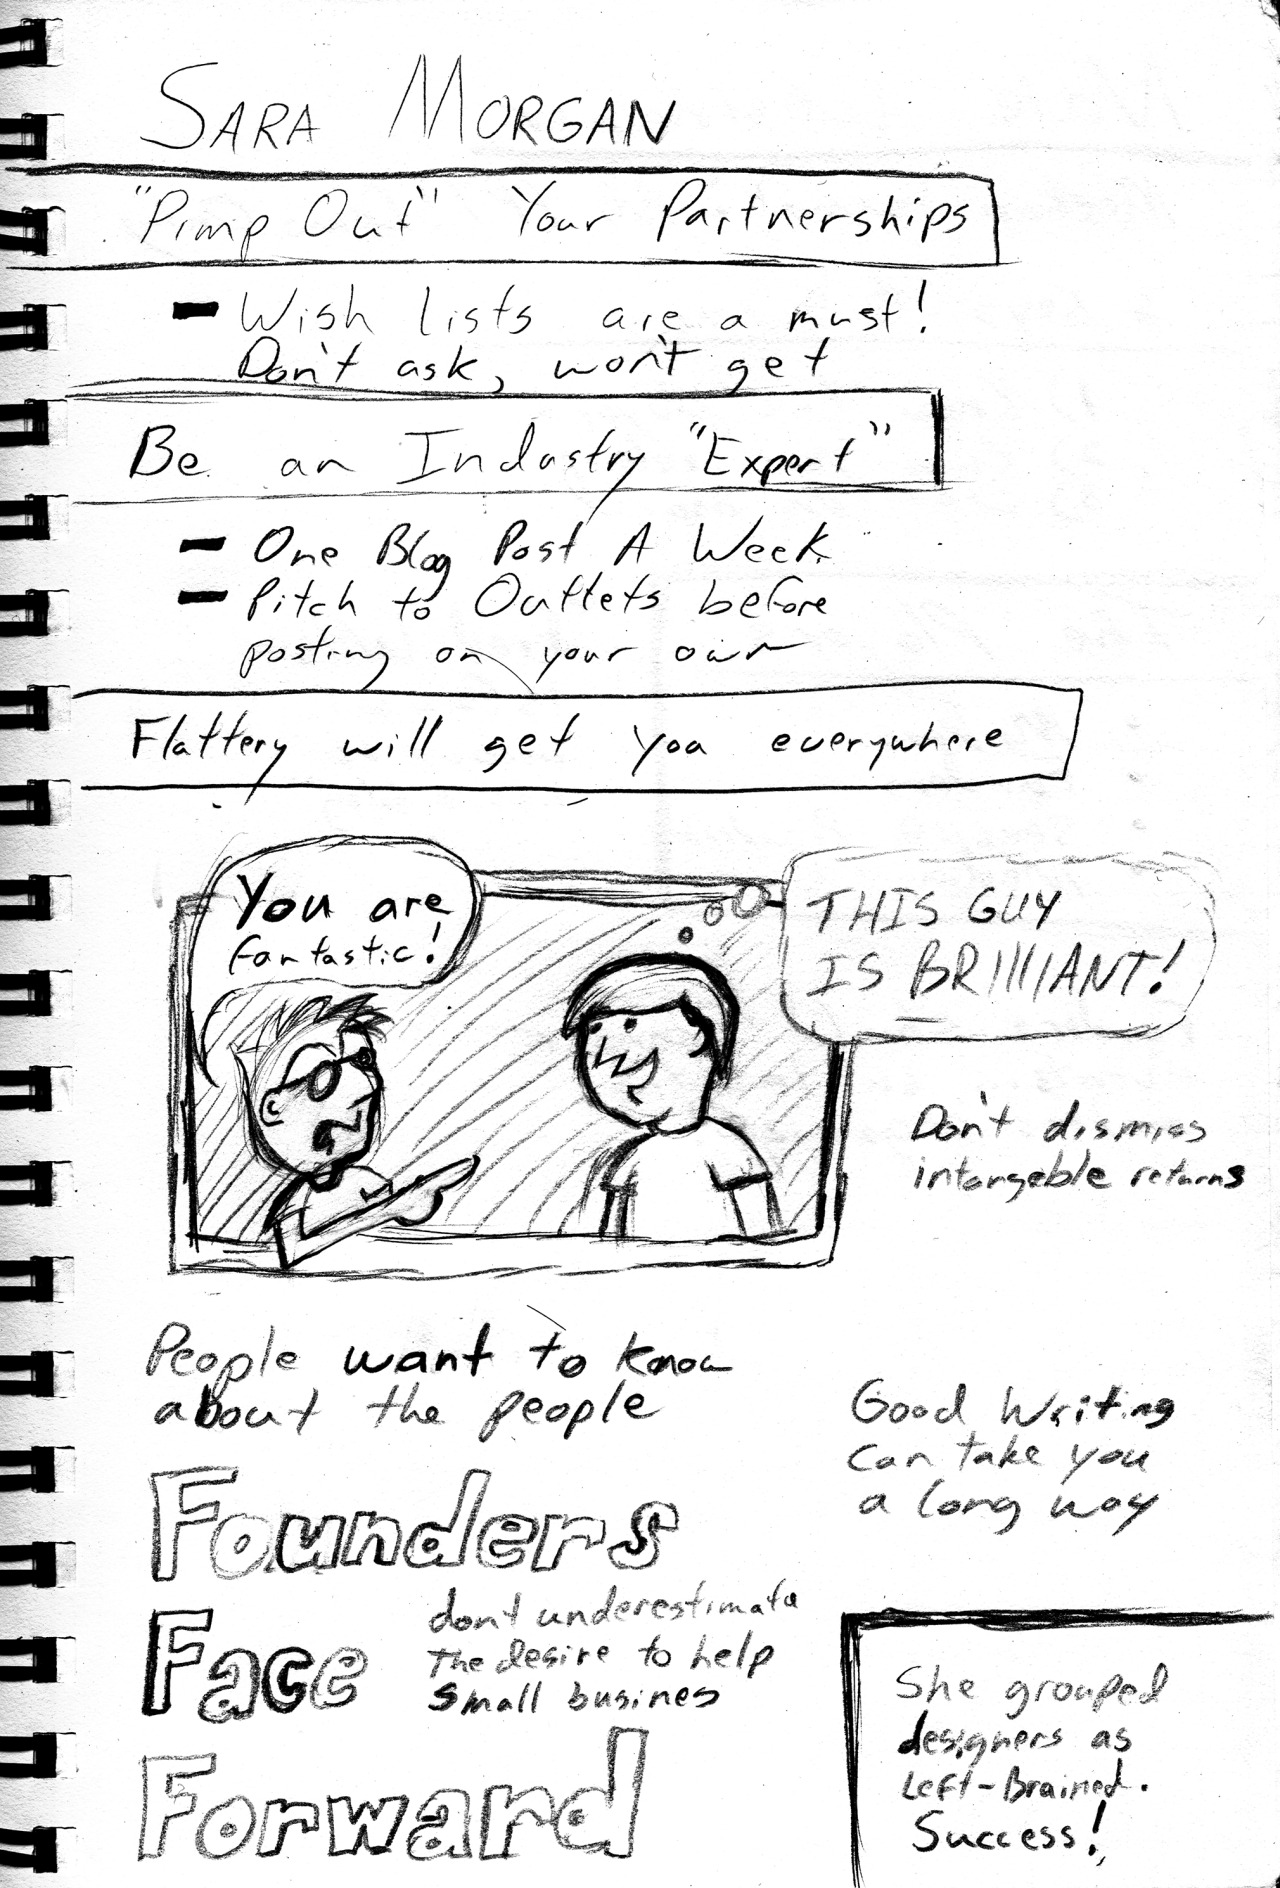 SARA MORGAN
"Pimp Out" Your Partnerships
- Wish lists are a must!
Don't ask, won't get
Be an Industry "Expert"
- One Blog Post A Week
- Pitch to Outlets before
posting on your own
Flattery will get you everywhere
You are
fantastic!
THIS GUY
IS BRIllIANT!
Don't dismiss
intangeble returns
People want to know
about the people
Good Writing
can take you
a long way
Founders
Face
dont underestimate
The desire to help
Small busines
Forward
She grouped
designers as
Left-Brained.
Success!